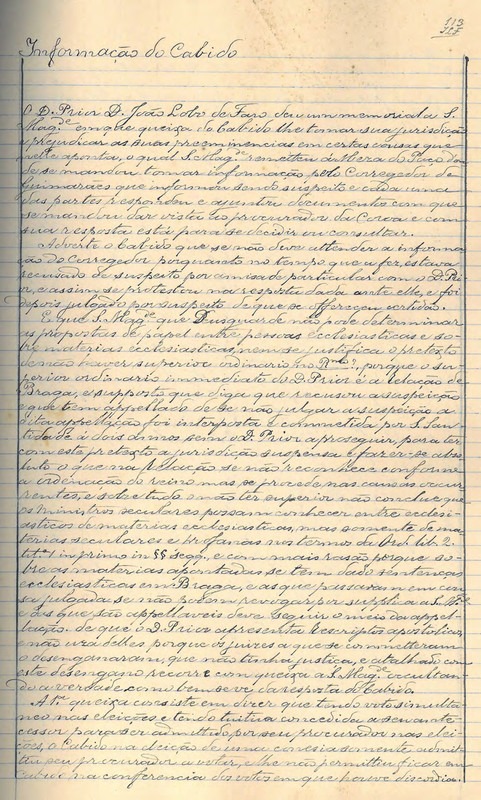 113
Informação do Cabido
O D. Prior D. João Lobo de Faro deu um memorial a S.
Mag.de em que queixa do Cabido lhe tomar sua jurisdicção
e prejudicar as suas preeminencias em certas causas que
nelle aponta, o qual S. Mag.de remetteu á Meza do Paço don-
de se mandou tomar informação pelo Corregedor de
Guimarães que informou sendo suspeito e cada uma
das partes respondeu e ajuntou documentos com que
se mandou dar vista ao procurador da Coroa e com
sua resposta está para se decidir ou consultar.
Adverte o Cabido que se não deve attender a informa-
ção do Corregedor porquanto no tempo que a fez, estava
recusado de suspeito por amisade particular com o D. Pri-
or, e assim se protestou na resposta dada ante elle, e foi
depois julgado por suspeito de que se offereceu certidão.
E que S. Mag.de que Deus guarde não pode determinar
as propostas de papel entre pessoas ecclesiasticas e so-
bre materias ecclesiasticas, nem se justifica o pretexto
de não haver superior ordinario no R.mo, porque o su-
perior ordinario immediato do D. Prior é a relação de
Braga, e supposto que diga que recusou a suspeição
e que tem appellado de se não julgar a suspeição a
dita appellação foi interposta e commetida por S. San-
tidade á dois annos sem o D. Prior a proseguir, para ter
com este pretexto a jurisdicção suspensa e fazer-se abso-
luto o que na relação se não reconhece conforme
a ordenação do reino mas se procede nas causas occur-
rentes, e sobretudo o não ter superior não conclue que
os ministros seculares possam conhecer entre ecclesi-
asticos de materias ecclesiasticas, mas somente de ma-
terias seculares e profanas nos termos da Ord. liv. 2.
tit. 1 in primo in §§ seqq., e com mais rasão porque so-
bre as materias apontadas, se tem dado sentenças
ecclesiasticas em Braga, e as que passaram em cau-
sa julgada se não podem revogar por supplica a S. M.de
e das que são appellaveis deve seguir o meio da appel-
lação. de que o D. Prior apresenta rescriptos apostolicos,
e não usa delles porque os juizes a que se commetteram
o desenganaram, que não tinha justiça, e atalhado com
este desengano recorre com queixa a S. Mag.de occultan-
do a verdade, como bem se ve da resposta do Cabido.
A 1.ª queixa consiste em dizer que tendo voto simulta-
neo nas eleições e tendo tuitiva concedida a seu ante-
cessor para ser admittido por seu procurador nas elei-
ções, o Cabido na eleição de uma conesia somente admit-
tiu seu procurador a votar, e lhe não permittiu ficar em
Cabido na conferencia dos votos em que houve discordia.